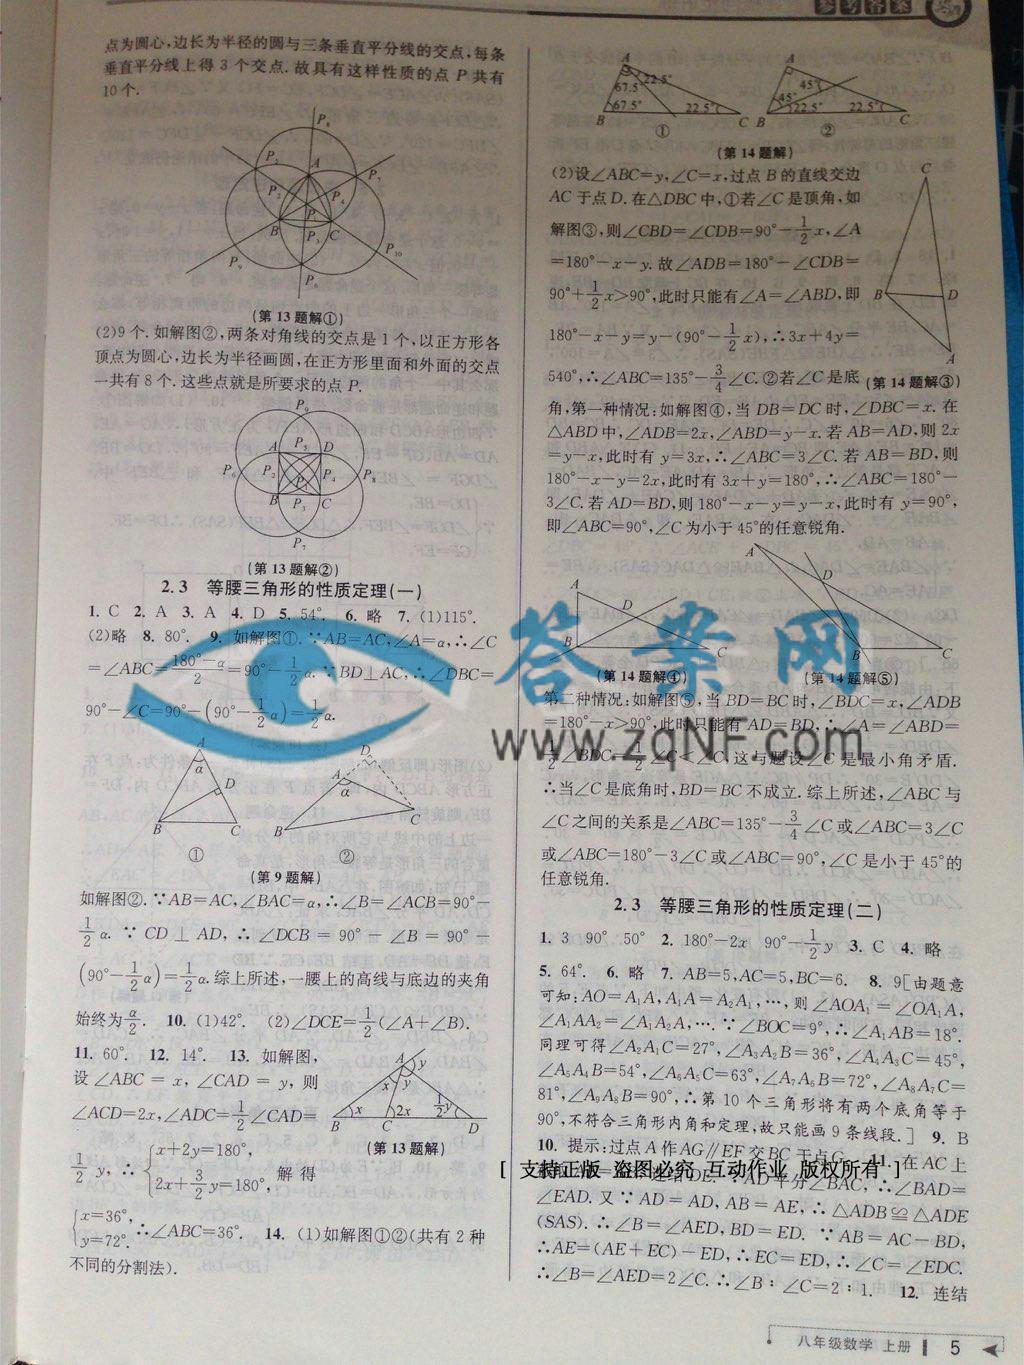 参考答案
点为圆心,边长为半径的圆与三条垂直平分线的交点,每条
垂直平分线上得 3 个交点.故具有这样性质的点 P 共有
10 个.
(第 13 题解①)
(2)9 个.如解图②,两条对角线的交点是 1 个,以正方形各
顶点为圆心,边长为半径画圆,在正方形里面和外面的交点
一共有 8 个.这些点就是所要求的点 P.
(第 13 题解②)
2.3 等腰三角形的性质定理(一)
1. C 2. A 3. A 4. D 5. 54°. 6. 略 7. (1)115°.
(2)略 8. 80°. 9. 如解图①.∵AB=AC,∠A=α,∴∠C
=∠ABC=(180°-α)/2=90°-1/2α.∵BD⊥AC,∴∠DBC=
90°-∠C=90°-(90°-1/2α)=1/2α.
① ②
(第 9 题解)
如解图②.∵AB=AC,∠BAC=α,∴∠B=∠ACB=90°-
1/2α.∵CD⊥AD,∴∠DCB=90°-∠B=90°-
(90°-1/2α)=1/2α.综上所述,一腰上的高线与底边的夹角
始终为α/2. 10. (1)42°. (2)∠DCE=1/2(∠A+∠B).
11. 60°. 12. 14°. 13. 如解图,
设∠ABC=x,∠CAD=y,则
∠ACD=2x,∠ADC=1/2∠CAD=
1/2y,∴{x+2y=180°, 2x+3/2y=180°, 解得
(第 13 题解)
{x=36°, y=72°. ∴∠ABC=36°. 14. (1)如解图①②(共有 2 种
不同的分割法).
A 22.5° 67.5° 67.5° 22.5° B C ①
A 45° 45° 22.5° 22.5° B C ②
(第 14 题解)
(2)设∠ABC=y,∠C=x,过点 B 的直线交边
AC 于点 D.在△DBC 中,①若∠C 是顶角,如
解图③,则∠CBD=∠CDB=90°-1/2x,∠A
=180°-x-y.故∠ADB=180°-∠CDB=
90°+1/2x>90°,此时只能有∠A=∠ABD,即
180°-x-y=y-(90°-1/2x),∴3x+4y=
540°,∴∠ABC=135°-3/4∠C.②若∠C 是底
(第 14 题解③)
角,第一种情况:如解图④,当 DB=DC 时,∠DBC=x.在
△ABD 中,∠ADB=2x,∠ABD=y-x.若 AB=AD,则 2x
=y-x,此时有 y=3x,∴∠ABC=3∠C.若 AB=BD,则
180°-x-y=2x,此时有 3x+y=180°,∴∠ABC=180°-
3∠C.若 AD=BD,则 180°-x-y=y-x,此时有 y=90°,
即∠ABC=90°,∠C 为小于 45°的任意锐角.
(第 14 题解④) (第 14 题解⑤)
第二种情况:如解图⑤,当 BD=BC 时,∠BDC=x,∠ADB
=180°-x>90°,此时只能有 AD=BD,∴∠A=∠ABD=
1/2∠BDC=1/2∠C<∠C,这与题设∠C 是最小角矛盾.
∴当∠C 是底角时,BD=BC 不成立.综上所述,∠ABC 与
∠C 之间的关系是∠ABC=135°-3/4∠C 或∠ABC=3∠C
或∠ABC=180°-3∠C 或∠ABC=90°,∠C 是小于 45°的
任意锐角.
2.3 等腰三角形的性质定理(二)
1. 3 90° 50° 2. 180°-2x 90°-1/2y 3. C 4. 略
5. 64°. 6. 略 7. AB=5,AC=5,BC=6. 8. 9[由题意
可知:AO=A₁A,A₁A=A₂A₁,…,则∠AOA₁=∠OA₁A,
∠A₁AA₂=∠A₁A₂A,….∵∠BOC=9°,∴∠A₁AB=18°.
同理可得∠A₂A₁C=27°,∠A₃A₂B=36°,∠A₄A₃C=45°,
∠A₅A₄B=54°,∠A₆A₅C=63°,∠A₇A₆B=72°,∠A₈A₇C=
81°,∠A₉A₈B=90°,∴第 10 个三角形将有两个底角等于
90°,不符合三角形内角和定理,故只能画 9 条线段.] 9. B
10. 提示:过点 A 作 AG∥EF 交 BC 于点 G. 11. 在 AC 上
[ 支持正版 盗图必究 互动作业 版权所有 ]
AD 平分∠BAC,∴∠BAD=
∠EAD.又∵AD=AD,AB=AE,∴△ADB≌△ADE
(SAS).∴∠B=∠AED,BD=ED.∵AB=AC-BD,
∴AE=(AE+EC)-ED,∴EC=ED,∴∠C=∠EDC.
∴∠B=∠AED=2∠C.∴∠B∶∠C=2∶1. 12. 连结
答案网
www.zqNF.com
八年级数学 上册 5